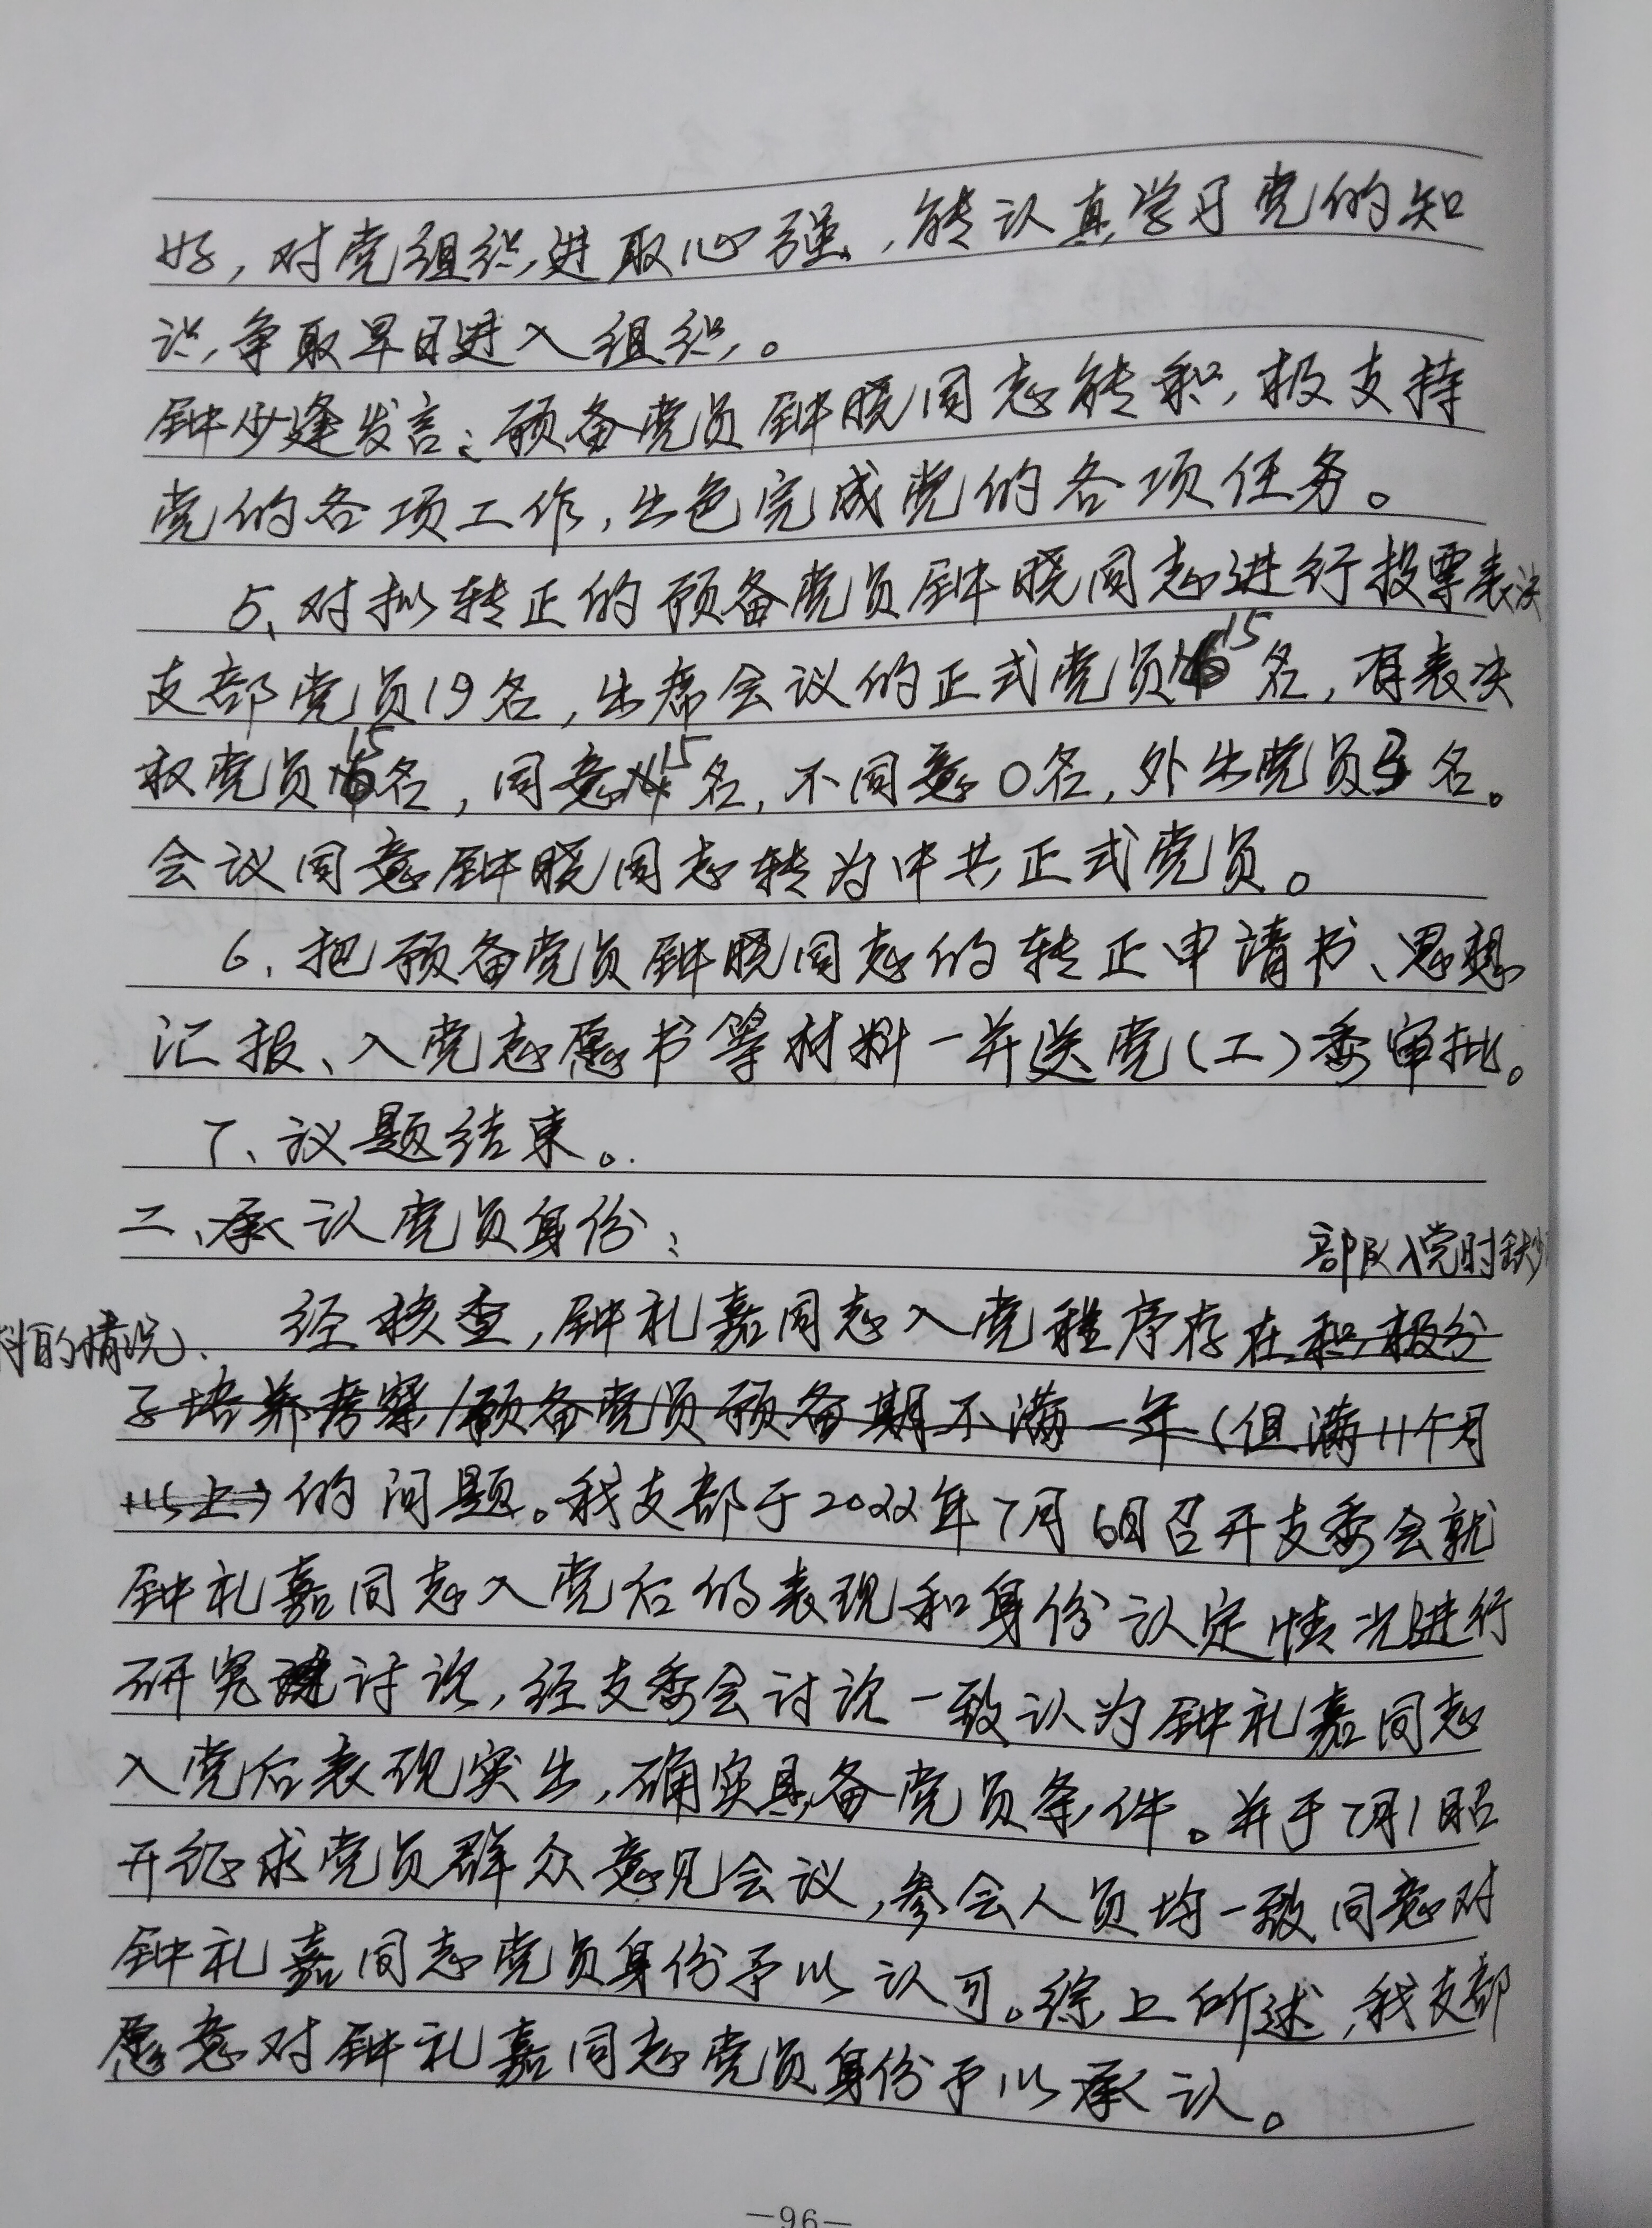 好，对党组织进取心强，能认真学习党的知
识，争取早日进入组织。
钟少逢发言：预备党员钟晓同志能积极支持
党的各项工作，出色完成党的各项任务。
5、对拟转正的预备党员钟晓同志进行投票表决
支部党员19名，出席会议的正式党员15名，有表决
权党员15名，同意15名，不同意0名，外出党员3名。
会议同意钟晓同志转为中共正式党员。
6、把预备党员钟晓同志的转正申请书、思想
汇报、入党志愿书等材料一并送党（工）委审批。
7、议题结束。
二、承认党员身份：
部队入党时缺少
料的情况
经核查，钟礼嘉同志入党程序存在积极分
子培养考察/预备党员预备期不满一年（但满11个月
以上）的问题。我支部于2022年7月6日召开支委会就
钟礼嘉同志入党后的表现和身份认定情况进行
研究讨论，经支委会讨论一致认为钟礼嘉同志
入党后表现突出，确实具备党员条件。并于7月1日召
开征求党员群众意见会议，参会人员均一致同意对
钟礼嘉同志党员身份予以认可。综上所述，我支部
愿意对钟礼嘉同志党员身份予以承认。
—96—